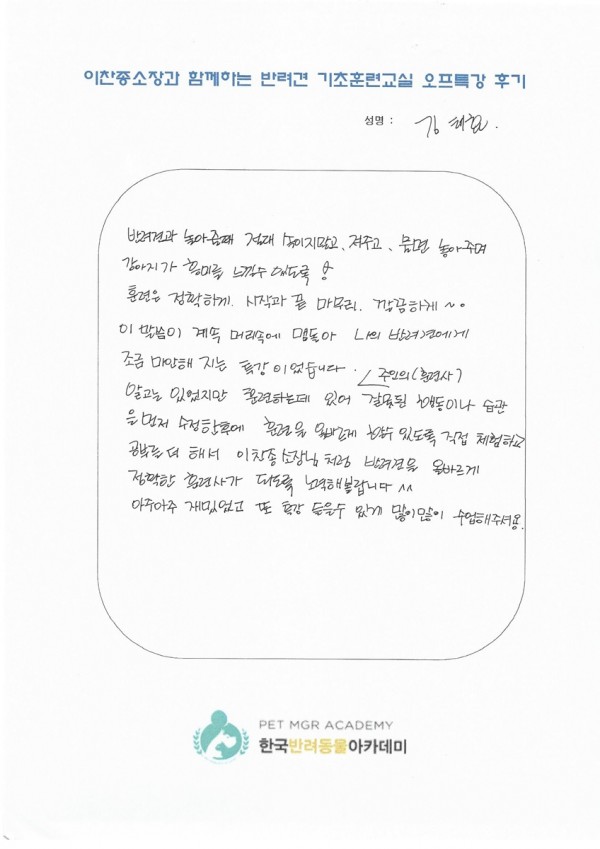 이찬종소장과 함께하는 반려견 기초훈련교실 오프특강 후기
성명 : 김
반려견과 놀아줄때 절대 이지말고, 져주고, 물면 놓아주며
강아지가 흥미를 느낄수 있도록
훈련은 정확하게. 시작과 끝 마무리. 깔끔하게 ~
이 말씀이 계속 머리속에 맴돌아 나의 반려견에게
조금 미안해 지는 특강이었습니다.
주인의 (훈련사)
알고는 있었지만 훈련하는데 있어 잘못된 행동이나 습관
을 먼저 수정한후에 훈련을 올바르게 할수 있도록 직접 체험하고
공부를 더 해서 이찬종소장님처럼 반려견을 올바르게
정확한 훈련사가 되도록 노력해볼랍니다 ^^
아주아주 재밌었고 또 특강 들을수 있게 많이많이 수업해주셔용.
PET MGR ACADEMY
한국반려동물아카데미